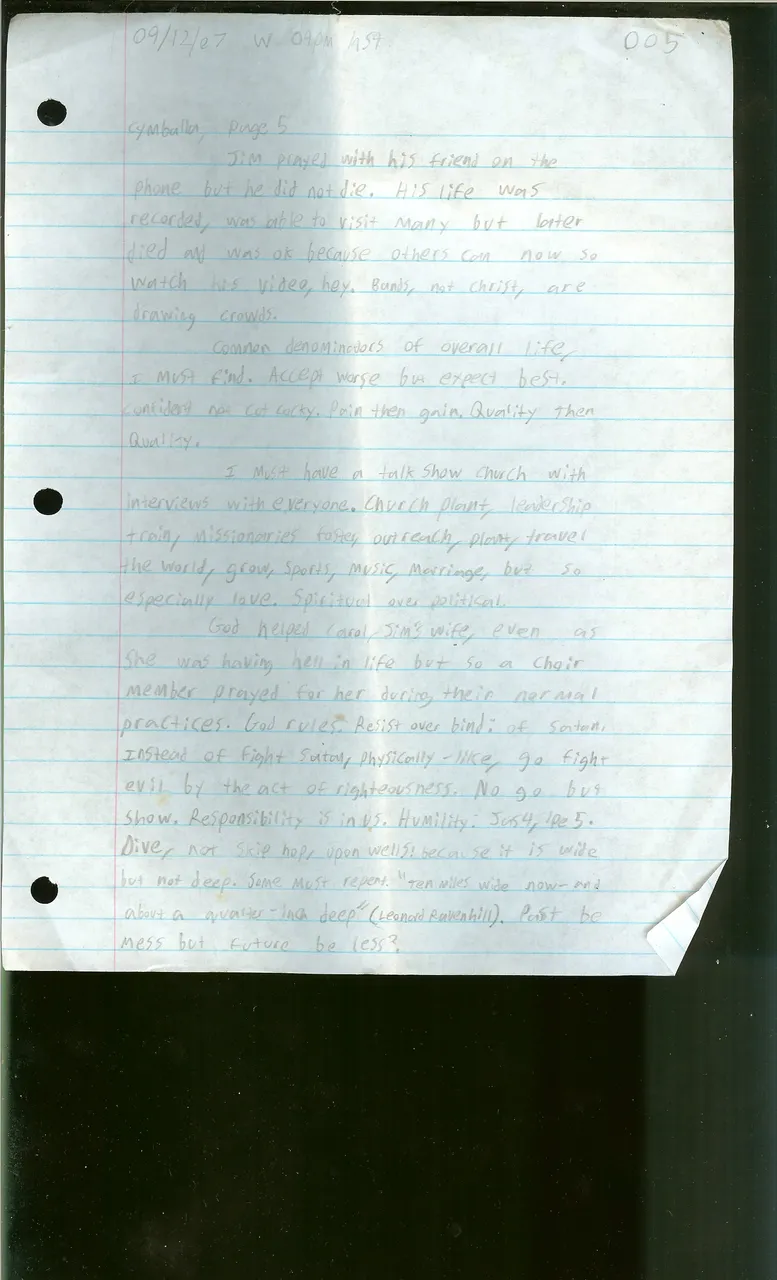 09/12/07 W 09pm hst 005
Cymballa, Page 5
Jim prayed with his friend on the
phone but he did not die. His life was
recorded, was able to visit many but later
died and was ok because others can now so
watch his video, hey. Bands, not christ, are
drawing crowds.
Common denominators of overall life,
I must find. Accept worse but expect best.
confident not cot cocky. Pain then gain. Quality then
Quality.
I must have a talk show church with
interviews with everyone. Church plant, leadership
train, missionaries foster, outreach, plant, travel
the world, grow, sports, music, marriage, but so
especially love. Spiritual over political.
God helped Carol, Jim's wife, even as
she was having hell in life but so a choir
member prayed for her during their normal
practices. God rules. Resist over bind: of Satan.
Instead of fight Satan, physically-like, go fight
evil by the act of righteousness. No go but
show. Responsibility is in us. Humility: Jas4, 1pe 5.
Dive, not skip hop, upon wells: because it is wide
but not deep. Some must repent. "Ten miles wide now- and
about a quarter-inch deep" (Leonard Ravenhill). Past be
mess but future be less?